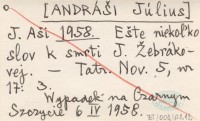 [ANDRÁŠI Július]
J. Aši 1958. Ešte niekoľko
slov k smrti J. Žebráko-
vej. – Tatr. Nov. 5, nr
17: 3.
Wypadek na Czarnym
Szczycie 6 IV 1958.